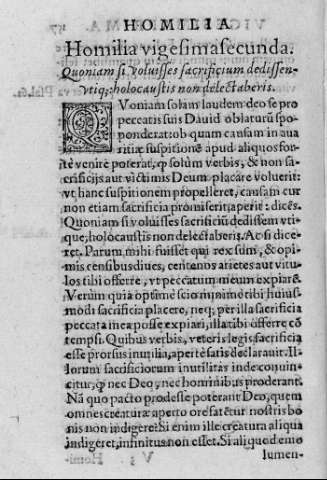 HOMILIA
Homilia vigesimasecunda.
Quoniam si voluisses sacrificium dedissem
vtiq; holocaustis non delectaberis.
QVoniam solam laudem deo se pro
peccatis suis Dauid oblaturũ spo-
ponderat: ob quam causam in aua
ritiæ suspitionẽ apud aliquos for-
te venire poterat, ꝙ solum verbis, & non sa-
crificijs aut victimis Deum placare voluerit:
vt hanc suspitionem propelleret, causam cur
non etiam sacrificia promiserit, aperit: dicẽs.
Quoniam si voluisses sacrificiũ dedissem vti-
que, holocaustis non delectaberis. Ac si dice-
ret. Parum mihi fuisset qui rex sum, & opi-
mis censibus diues, centenos arietes aut vitu
los tibi offerre, vt peccatum meum expiarẽ.
Verùm quia optimè scio minimè tibi huius-
modi sacrificia placere, neq; per illa sacrificia
peccata mea posse expiari, illa tibi offerre cõ
tempsi. Quibus verbis, veteris legis sacrificia
esse prorsus inutilia, apertè satis declarauit. Il-
lorum sacrificiorum inutilitas inde conuin-
citur, ꝙ nec Deo, nec hominibus proderant.
Nã quo pacto prodesse poterant Deo, quem
omnes creaturæ aperto ore fatẽtur nostris bo
nis non indigere? Si enim ille creatura aliqua
indigeret, infinitus non esset. Si aliquod emo
V 3 lumen-